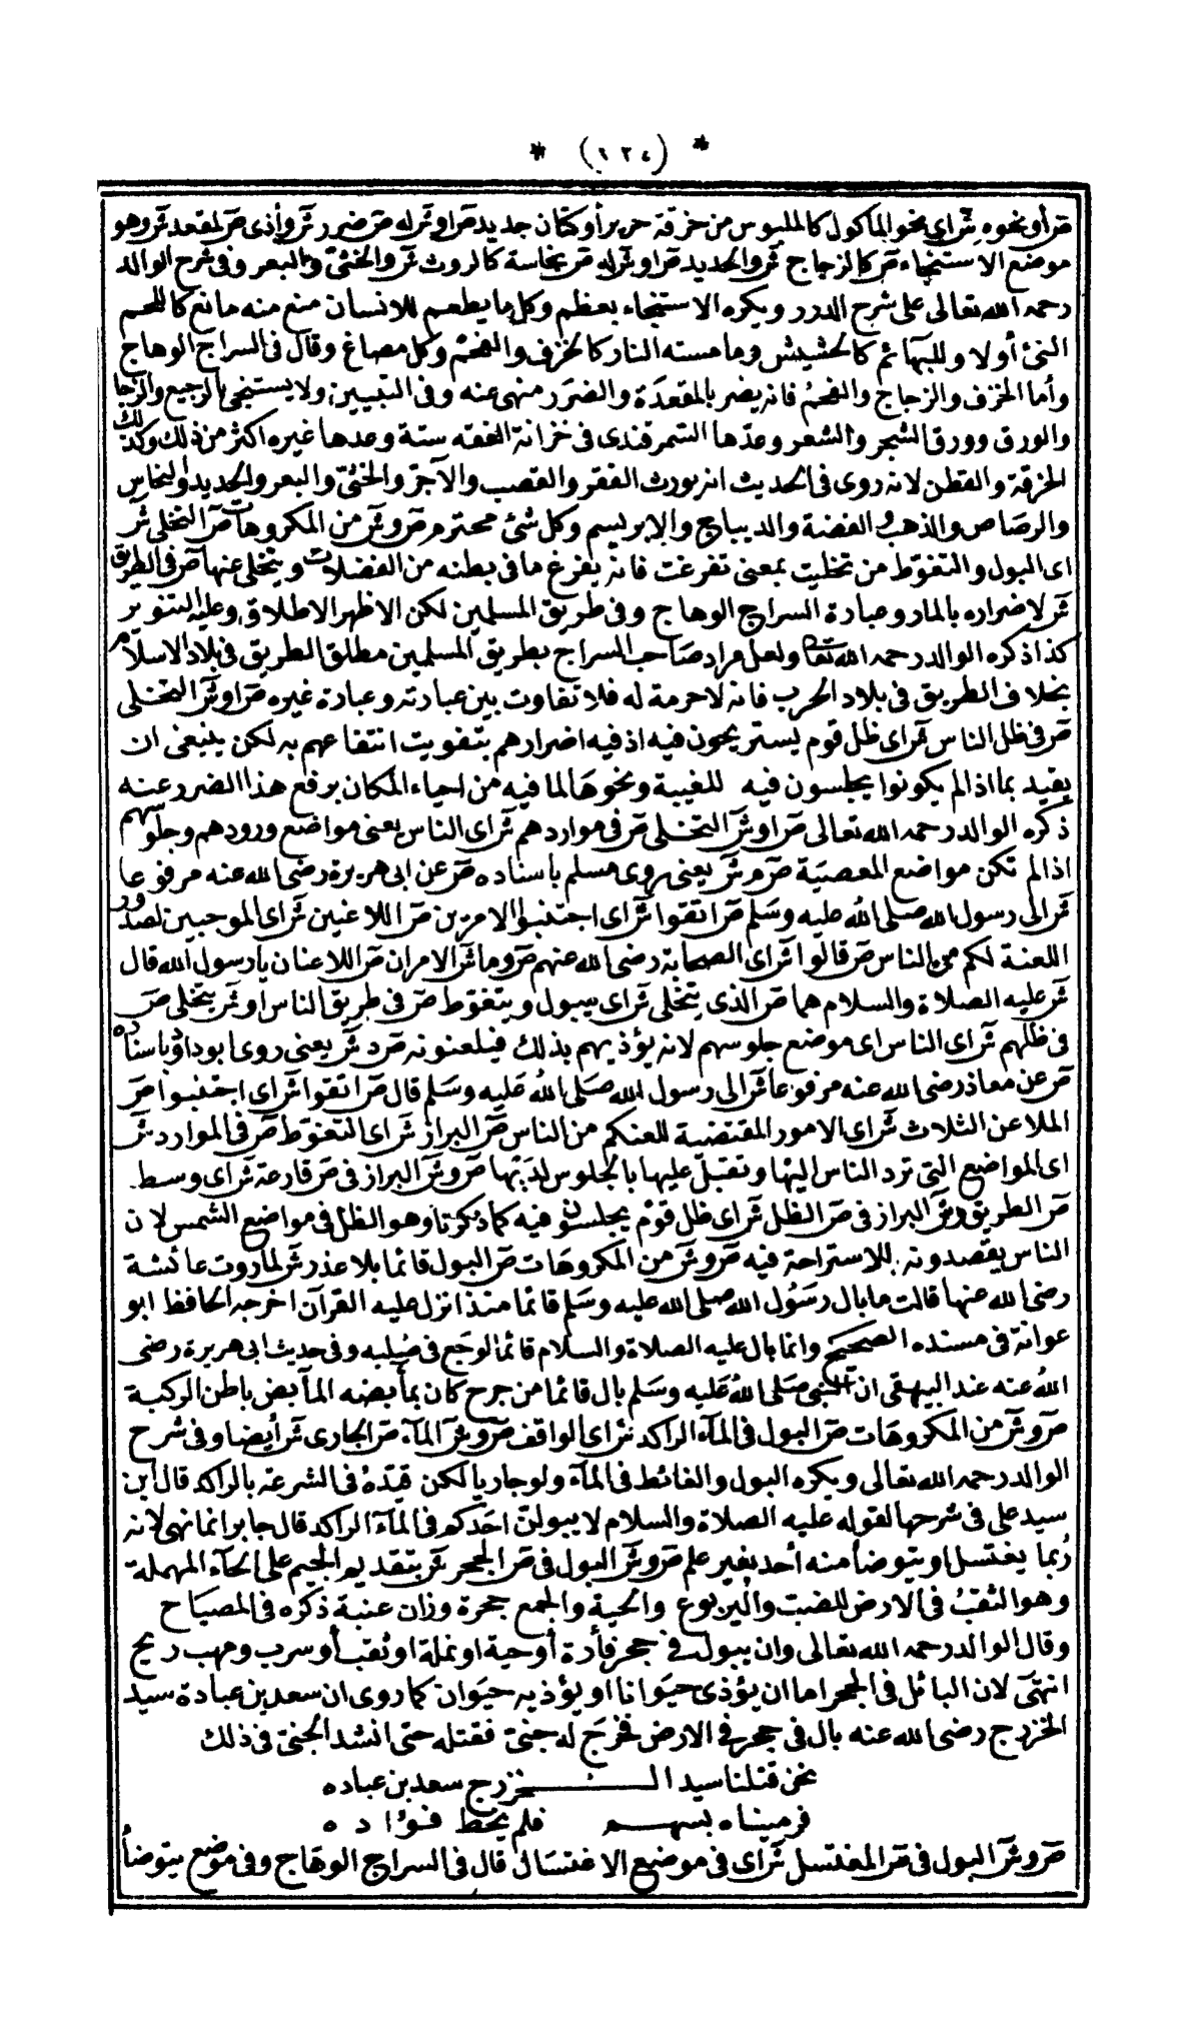 * (١٢٤) *
ص أو نحوه ش اي نحو المأكول كالملبوس من خرقة حرير أو كتان جديد ص او ش له ص ضرر ش وأذى ص لمقعد ش وهو
موضع الاستنجاء ص كالزجاج ش والحديد ص او ش له ص نجاسة كالروث ش والخثى والبعر وفى شرح الوالد
رحمه الله تعالى على شرح الدرر ويكره الاستنجاء بعظم وكل ما يطعم للانسان منع منه مانع كاللحم
النئ أولا وللبهائم كالحشيش وما مسته النار كالخزف والفحم وكل مصاغ وقال فى السراج الوهاج
وأما الخزف والزجاج والفحم فانه يضر بالمقعدة والضرر منهى عنه وفى التبيين ولا يستنجى بالرجيع والزجا
والورق وورق الشجر والشعر وعدها السمرقندى فى خزانة الفقه ستة وعدها غيره اكثر من ذلك وكذلك
الخرقة والقطن لانه روى فى الحديث انه يورث الفقر والقصب والآجر والخثى والبعر والحديد والنحاس
والرصاص والذهب والفضة والديباج والابريسم وكل شئ محترم ص و ش من المكروهات ص التخلى ش
اى البول والتغوط من تخليت بمعنى تفرغت فانه يفرغ ما فى بطنه من الفضلات ويتخلى عنها ص فى الطريق
ش لاضراره بالمار وعبارة السراج الوهاج وفى طريق المسلمين لكن الاظهر الاطلاق وعليه التنوير
كذا ذكره الوالد رحمه الله تعالى ولعل مراد صاحب السراج بطريق المسلمين مطلق الطريق فى بلاد الاسلام
بخلاف الطريق فى بلاد الحرب فانه لا حرمة له فلا تفاوت بين عبارته وعبارة غيره ص او ش التخلى
ص فى ظل الناس ش اى ظل قوم يستريحون فيه اذ فيه اضرارهم بتفويت انتفاعهم به لكن ينبغى ان
يقيد بما اذا لم يكونوا يجلسون فيه للغيبة ونحوها لما فيه من احياء المكان برفع هذا الضرر عنه
ذكره الوالد رحمه الله تعالى ص او ش التخلى ص فى مواردهم ش اى الناس يعنى مواضع ورودهم وجلوسهم
اذا لم تكن مواضع المعصية ص م ش يعنى روى مسلم باسناده ص عن ابى هريرة رضى الله عنه مرفوعا
ش الى رسول الله صلى الله عليه وسلم ص اتقوا ش اى اجتنبوا الامرين ص اللاعنين ش اى الموجبين لصدور
اللعنة لكم من الناس ص قالوا ش اى الصحابة رضى الله عنهم ص وما ش الامران ص اللاعنان يا رسول الله قال
ش عليه الصلاة والسلام هما ص الذى يتخلى ش اى يبول ويتغوط ص فى طريق الناس او ش يتخلى ص
فى ظلهم ش اى الناس اى موضع جلوسهم لانه يؤذيهم بذلك فيلعنونه ص د ش يعنى روى ابو داود باسناده
ص عن معاذ رضى الله عنه مرفوعا ش الى رسول الله صلى الله عليه وسلم قال ص اتقوا ش اى اجتنبوا ص
الملاعن الثلاث ش اى الامور المقتضية للعنكم من الناس ص البراز ش اى التغوط ص فى الموارد ش
اى المواضع التى ترد الناس اليها وتقبل عليها بالجلوس لديها ص و ش البراز فى ص قارعة ش اى وسط
ص الطريق و ش البراز فى ص الظل ش اى ظل قوم يجلسون فيه كما ذكرنا وهو الظل فى مواضع الشمس لان
الناس يقصدونه للاستراحة فيه ص و ش من المكروهات ص البول قائما بلا عذر ش لما روت عائشة
رضى الله عنها قالت ما بال رسول الله صلى الله عليه وسلم قائما منذ انزل عليه القرآن اخرجه الحافظ ابو
عوانة فى مسنده الصحيح وانما بال عليه الصلاة والسلام قائما لوجع فى صلبه وفى حديث ابى هريرة رضى
الله عنه عند البيهقى ان النبى صلى الله عليه وسلم بال قائما من جرح كان بمأبضه المأبض باطن الركبة
ص و ش من المكروهات ص البول فى الماء الراكد ش اى الواقف ص و ش الماء ص الجارى ش أيضا وفى شرح
الوالد رحمه الله تعالى ويكره البول والغائط فى الماء ولو جاريا لكن قيده فى الشرعة بالراكد قال ابن
سيد على فى شرحها لقوله عليه الصلاة والسلام لا يبولن احدكم فى الماء الراكد قال جابر انما نهى لانه
ربما يغتسل او يتوضأ منه أحد بغير علم ص و ش البول فى ص الجحر ش بتقديم الجيم على الحاء المهملة
وهو الثقب فى الارض للضب واليربوع والحية والجمع جحرة وزان عنبة ذكره فى المصباح
وقال الوالد رحمه الله تعالى وان يبول فى جحر فأرة أو حية او نملة او ثقب أو سرب ومهب ريح
انتهى لان البائل فى الجحر اما ان يؤذى حيوانا او يؤذيه حيوان كما روى ان سعد بن عبادة سيد
الخزرج رضى الله عنه بال فى جحر فى الارض فخرج له جنى فقتله حتى انشد الجنى فى ذلك
نحن قتلنا سيد الـخزرج سعد بن عباده
فرميناه بسهم فلم يخط فؤاده
ص و ش البول فى ص المغتسل ش اى فى موضع الاغتسال قال فى السراج الوهاج وفى موضع يتوضأ